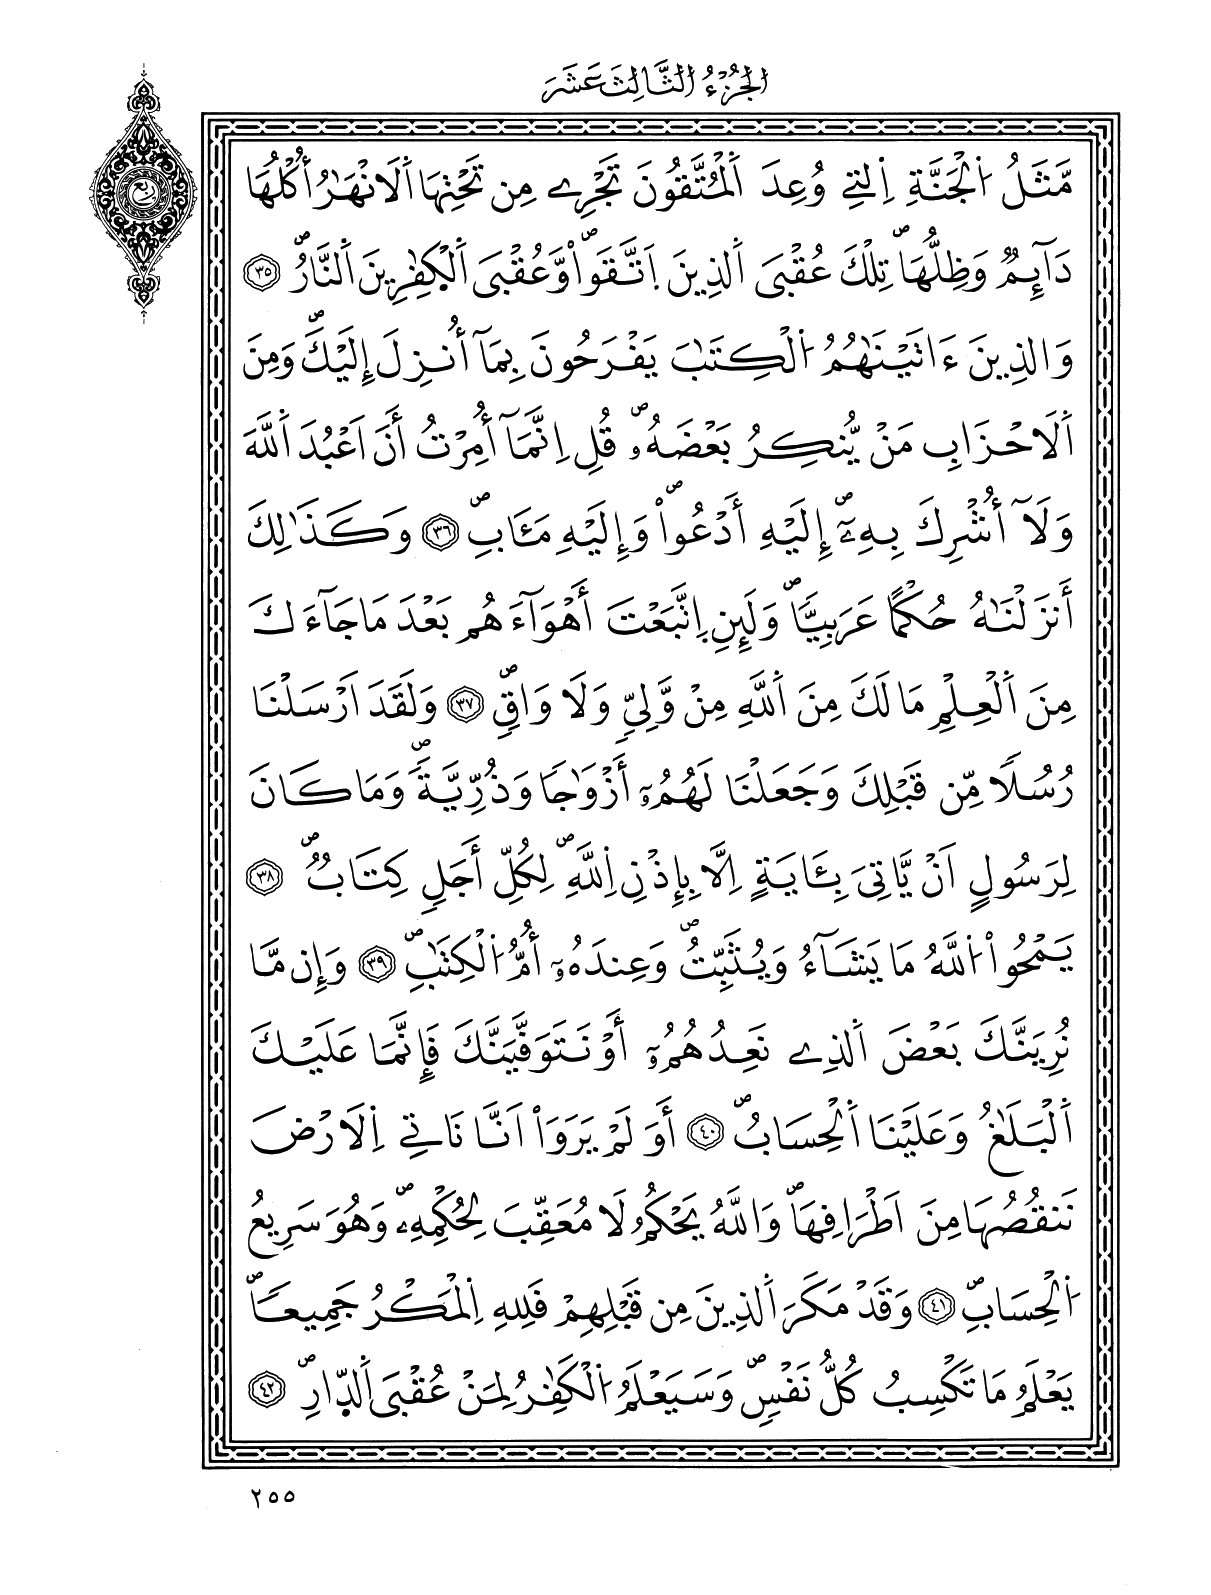 الجُزْءُ الثَّالِثَ عَشَرَ
ربع
مَّثَلُ اُ۬لْجَنَّةِ اِ۬لتِے وُعِدَ اَ۬لْمُتَّقُونَ تَجْرِے مِن تَحْتِهَا اَ۬لَانْهَٰرُ أُكْلُهَا
دَآئِمٞ وَظِلُّهَاۖ تِلْكَ عُقْبَى اَ۬لذِينَ اَ۪تَّقَواْۖ وَّعُقْبَى اَ۬لْكٰ۪فِرِينَ اَ۬لنَّارُۖ ۝٣٥
وَالذِينَ ءَاتَيْنَٰهُمُ اُ۬لْكِتَٰبَ يَفْرَحُونَ بِمَآ أُنزِلَ إِلَيْكَۖ وَمِنَ
اَ۬لَاحْزَابِ مَنْ يُّنكِرُ بَعْضَهُۥۖ قُلِ اِنَّمَآ أُمِرْتُ أَنَ اَعْبُدَ اَ۬للَّهَ
وَلَآ أُشْرِكَ بِهِۦٓۖ إِلَيْهِ أَدْعُواْۖ وَإِلَيْهِ مَـَٔابِۖ ۝٣٦ وَكَذَٰلِكَ
أَنزَلْنَٰهُ حُكْماً عَرَبِيّاٗۖ وَلَئِنِ اِ۪تَّبَعْتَ أَهْوَآءَهُم بَعْدَ مَا جَآءَكَ
مِنَ اَ۬لْعِلْمِ مَا لَكَ مِنَ اَ۬للَّهِ مِنْ وَّلِيّٖ وَلَا وَاقٖۖ ۝٣٧ وَلَقَدَ اَرْسَلْنَا
رُسُلاٗ مِّن قَبْلِكَ وَجَعَلْنَا لَهُمُۥٓ أَزْوَٰجاٗ وَذُرِّيَّةٗۖ وَمَا كَانَ
لِرَسُولٍ اَنْ يَّاتِيَ بِـَٔايَةٍ اِلَّا بِإِذْنِ اِ۬للَّهِۖ لِكُلِّ أَجَلٖ كِتَابٞۖ ۝٣٨
يَمْحُواْ اُ۬للَّهُ مَا يَشَآءُ وَيُثَبِّتُۖ وَعِندَهُۥٓ أُمُّ اُ۬لْكِتَٰبِۖ ۝٣٩ وَإِن مَّا
نُرِيَنَّكَ بَعْضَ اَ۬لذِے نَعِدُهُمُۥٓ أَوْ نَتَوَفَّيَنَّكَ فَإِنَّمَا عَلَيْكَ
اَ۬لْبَلَٰغُ وَعَلَيْنَا اَ۬لْحِسَابُۖ ۝٤٠ أَوَ لَمْ يَرَوَاْ اَنَّا نَاتِے اِ۬لَارْضَ
نَنقُصُهَا مِنَ اَطْرَافِهَاۖ وَاللَّهُ يَحْكُمُ لَا مُعَقِّبَ لِحُكْمِهِۦۖ وَهُوَ سَرِيعُ
اُ۬لْحِسَابِۖ ۝٤١ وَقَدْ مَكَرَ اَ۬لذِينَ مِن قَبْلِهِمْ فَلِلهِ اِ۬لْمَكْرُ جَمِيعاٗۖ
يَعْلَمُ مَا تَكْسِبُ كُلُّ نَفْسٖۖ وَسَيَعْلَمُ اُ۬لْكَٰفِرُ لِمَنْ عُقْبَى اَ۬لدّ۪ارِۖ ۝٤٢
٢٥٥